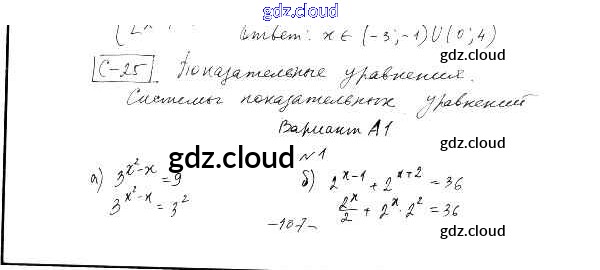 gdz.cloud
Ответ: x ∈ (-3; -1) ∪ (0; 4)
gdz.cloud
С-25. Показательные уравнения.
Системы показательных уравнений
gdz.cloud
Вариант А1
gdz.cloud
№1
gdz.cloud
а) 3^{x²-x} = 9
б) 2^{x-1} + 2^{x+2} = 36
3^{x²-x} = 3²
2^x/2 + 2^x · 2² = 36
gdz.cloud
-107-
gdz.cloud